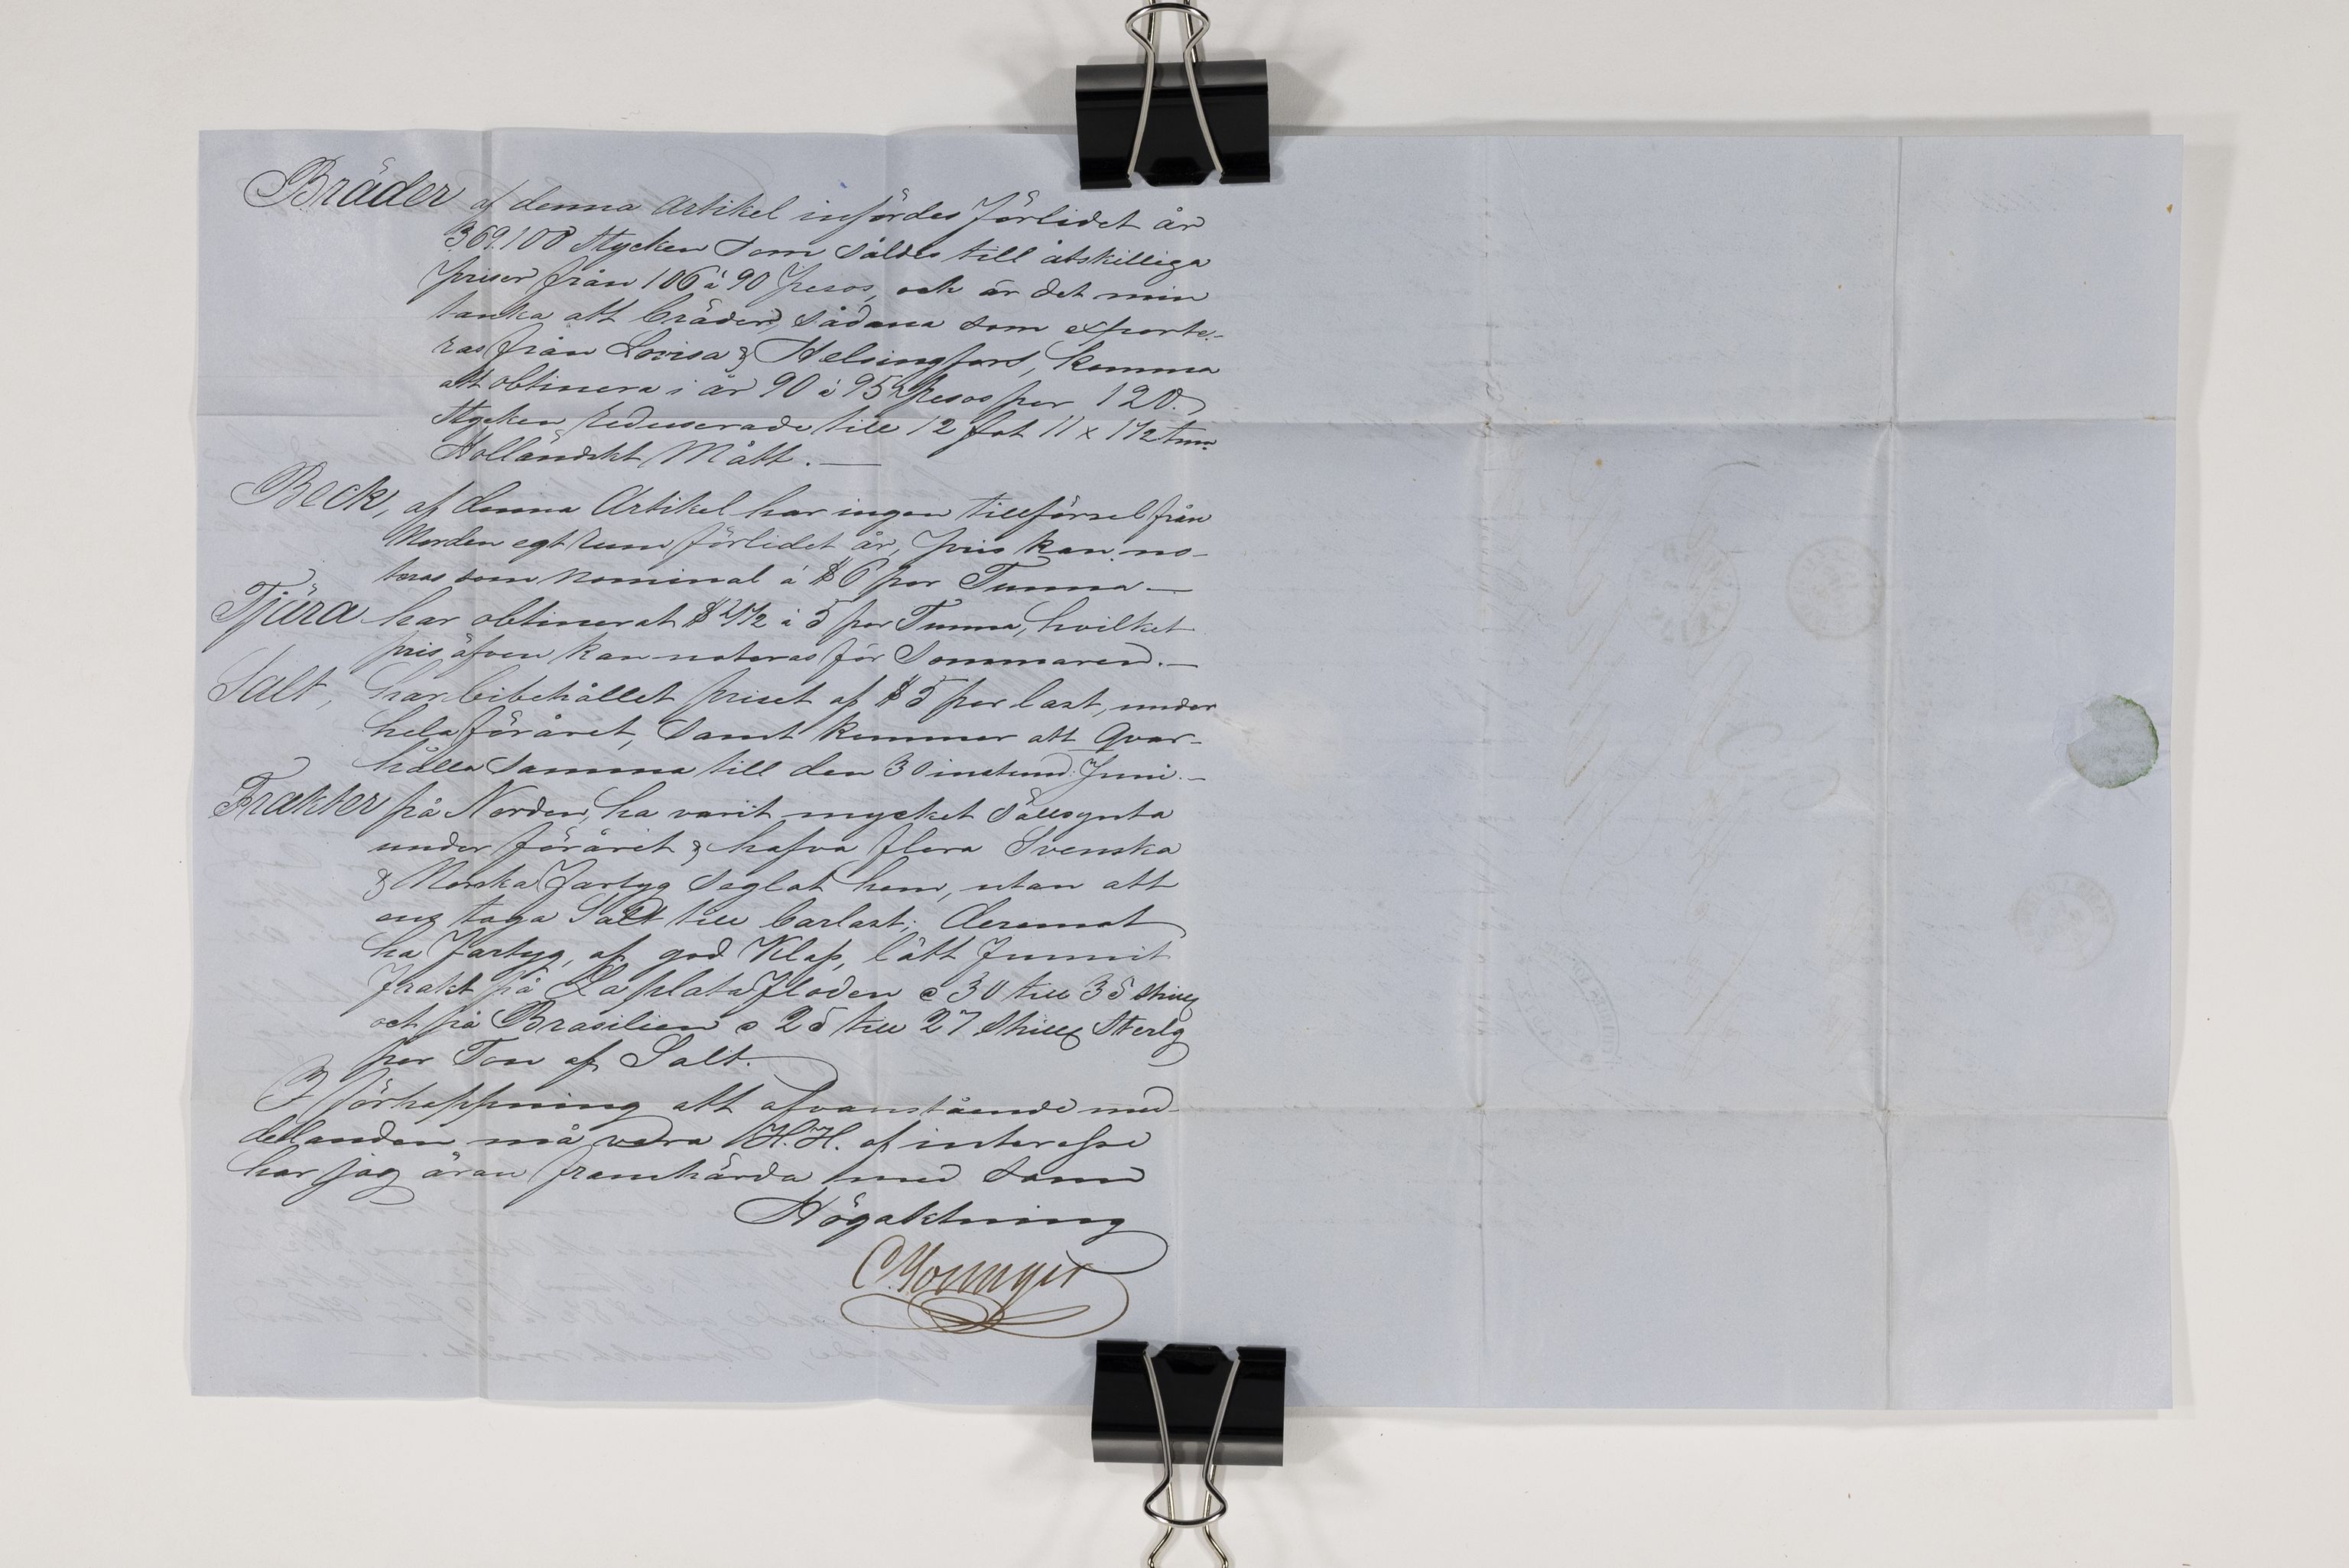 Bräder af denna Artikel infördes förlidet år
369.100 Stycken som såldes till åtskilliga
priser från 106 à 90 Pesos, och är det min
tanka att bräder, sådana som exporte-
ras från Lovisa & Helsingfors, komma
att obtinera i år 90 à 95 Pesos per 120
Stycken reducerade till 12 fot 11 x 1 1/2 tum
Holländskt Mått.—
Beck, af denna Artikel har ingen tillförsel från
Norden egt rum förlidet år, pris kan no-
teras som nominal à $6 per Tunna—
Tjära har obtinerat $ 4 1/2 à 5 per Tunna, hvilket
pris äfven kan noteras för Sommaren.—
Salt, har bibehållet priset af $5 per last, under
hela föråret, samt kommer att qvar-
hålla samma till den 30 instund: Juni.—
Frakter på Norden, ha varit mycket sällsynta
under föråret & hafva flera Svenska
& Norska Fartyg seglat hem, utan att
ens taga Salt till barlast; deremot
ha Fartyg, af god Klass, lätt funnit
frakt på Laplata floden a 30 till 35 shillg
och på Brasilien a 25 till 27 Shillg Sterlg
per Ton af Salt.
I förhoppning att ofvanstående med-
delanden må vara H.H. af interesse
har jag äran framhärda med sann
Högaktning